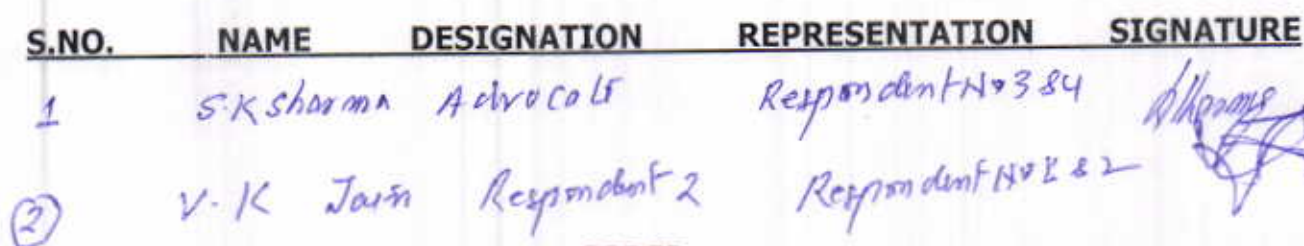 S.NO. NAME DESIGNATION REPRESENTATION SIGNATURE
1 S.K Sharma Advocate Respondent No 3 & 4 Sharma
2 V.K Jain Respondent 2 Respondent No 1 & 2